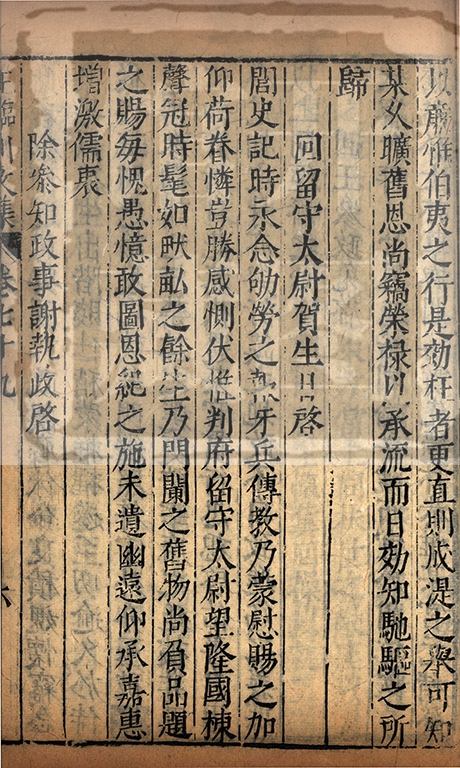 以廉惟伯夷之行是効枉者更直則成湜之舉可知
某久曠舊恩尚竊榮祿以承流而日効知馳驅之所
歸
回留守太尉賀生日啓
閭史記時永念劬勞之報牙兵傳教乃蒙慰賜之加
仰荷眷憐豈勝感惻伏惟判府留守太尉望隆國棟
聲冠時髦如畎畝之餘生乃門闌之舊物尚負品題
之賜每愧愚憶敢圖恩紀之施未遺幽遠仰承嘉惠
增激儒衷
除參知政事謝執政啓
臨川文集 卷七十九
六